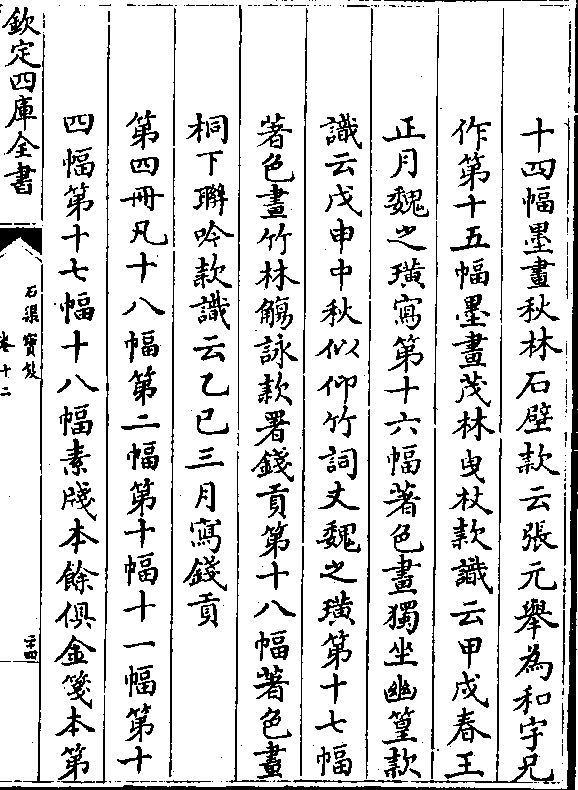 十四幅墨畫秋林石壁款云張元舉為和宇兄
作第十五幅墨畫茂林曳杖款識云甲戌春王
正月魏之璜寫第十六幅著色畫獨坐幽篁款
識云戊申中秋似仰竹詞丈魏之璜第十七幅
著色畫竹林觴詠款署錢貢第十八幅著色畫
桐下聨吟款識云乙巳三月寫錢貢
第四冊凡十八幅第二幅第十幅十一幅第十
四幅第十七幅十八幅素牋本餘俱金箋本第
欽定四庫全書
石渠寳笈
卷十二
二十四